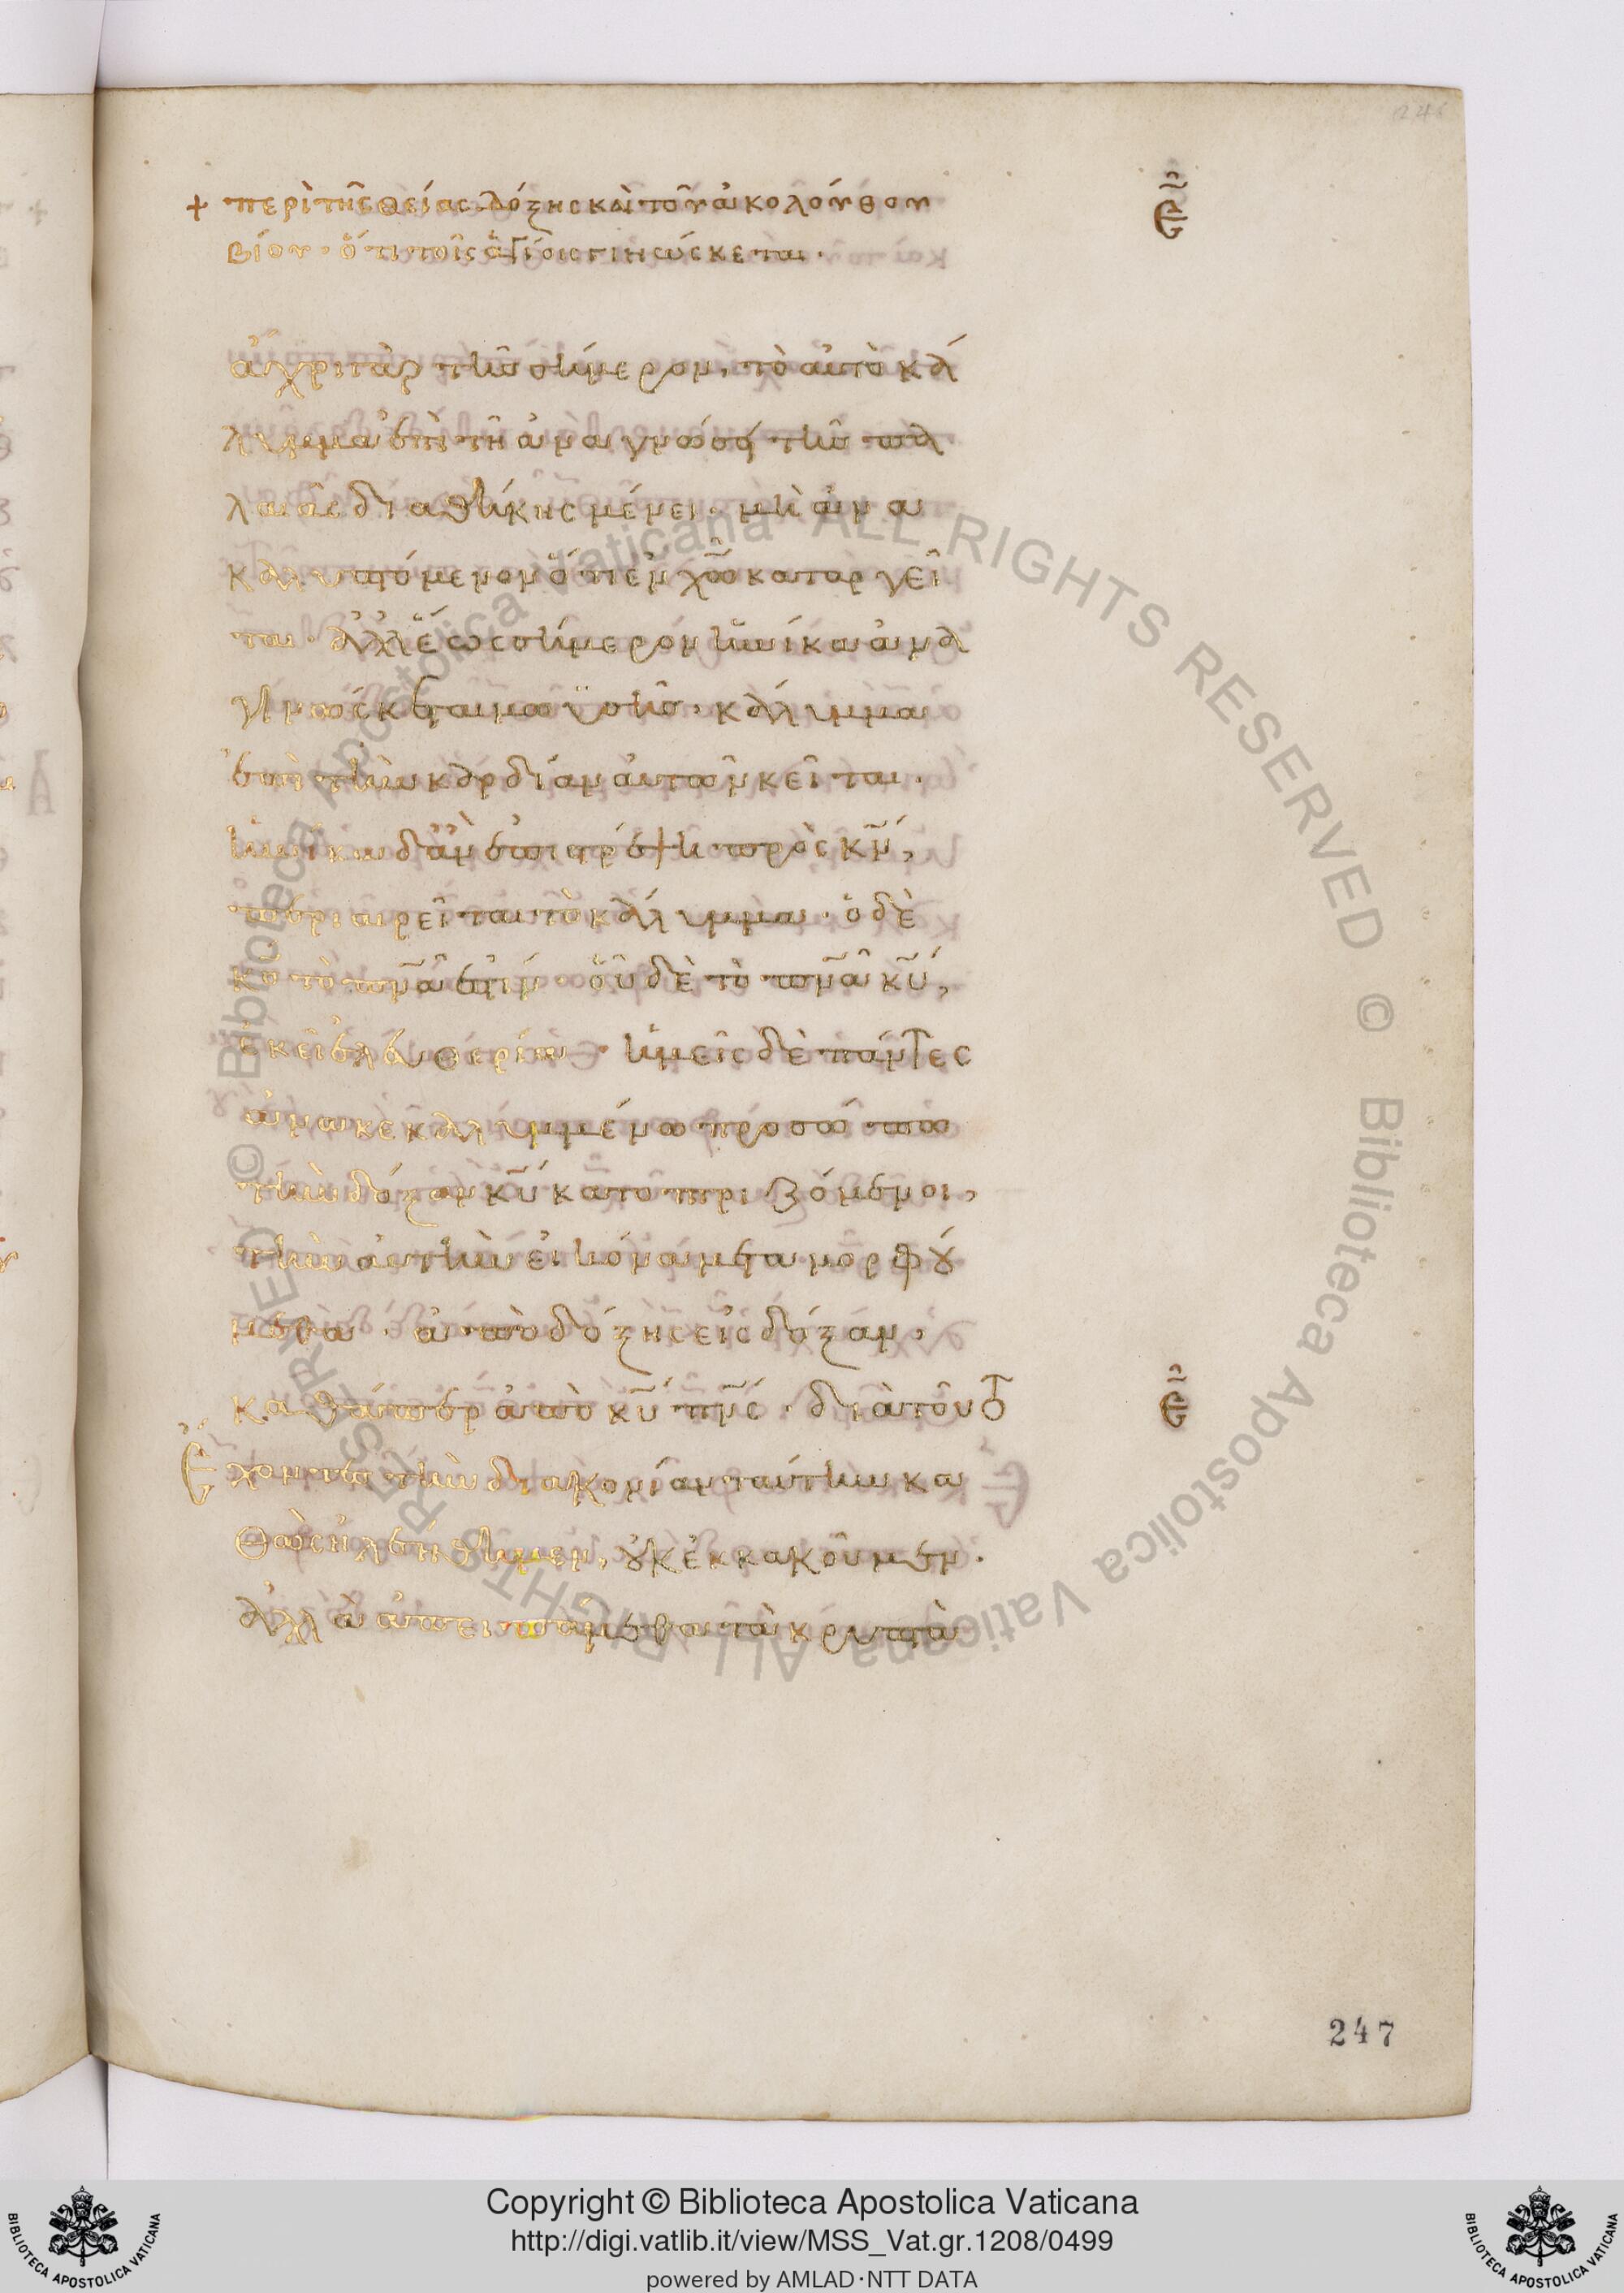 + περὶ τῆς θείας δόξης καὶ τοῦ ἀκολούθου
βίου· ὅτι τοῖς ἁγίοις γινώσκεται·
ἄχρι γὰρ τῆς σήμερον, τὸ αὐτὸ κά
λυμμα ἐπὶ τῆ ἀναγνώσει τῆς πα
λαιᾶς διαθήκης μένει· μὴ ἀνα
καλυπτόμενον ὅτι ἐν χῶ καταργεῖ
ται· ἀλλ' ἕως σήμερον ἡνίκα ἀνα
γινώσκεται μωϋσῆς· κάλυμμα
ἐπὶ τὴν καρδίαν αὐτῶν κεῖται·
ἡνίκα δ' ἂν ἐπιστρέψη πρὸς κν,
περιαιρεῖται τὸ κάλυμμα· ὁ δὲ
κς τὸ πνα ἐστιν· οὗ δὲ τὸ πνα κυ,
ἐκεῖ ἐλευθερία· ἡμεῖς δὲ πάντες
ἀνακεκαλυμμένω προσώπω
τὴν δόξαν κυ κατοπτριζόμενοι,
τὴν αὐτὴν εἰκόνα μεταμορφού
μεθα· ἀπὸ δόξης εἰς δόξαν·
καθάπερ ἀπὸ κυ πνς· διὰ τοῦτο
ἔχοντες τὴν διακονίαν ταύτην κα
θὼς ἠλεήθημεν, οὐκ ἐκκακοῦμεν·
ἀλλὰ ἀπειπάμεθα τὰ κρυπτὰ
247
© Biblioteca Apostolica Vaticana ALL RIGHTS RESERVED © Biblioteca Apostolica Vaticana ALL RIGHTS RESERVED
Copyright © Biblioteca Apostolica Vaticana
http://digi.vatlib.it/view/MSS_Vat.gr.1208/0499
powered by AMLAD·NTT DATA
BIBLIOTECA APOSTOLICA VATICANA
BIBLIOTECA APOSTOLICA VATICANA